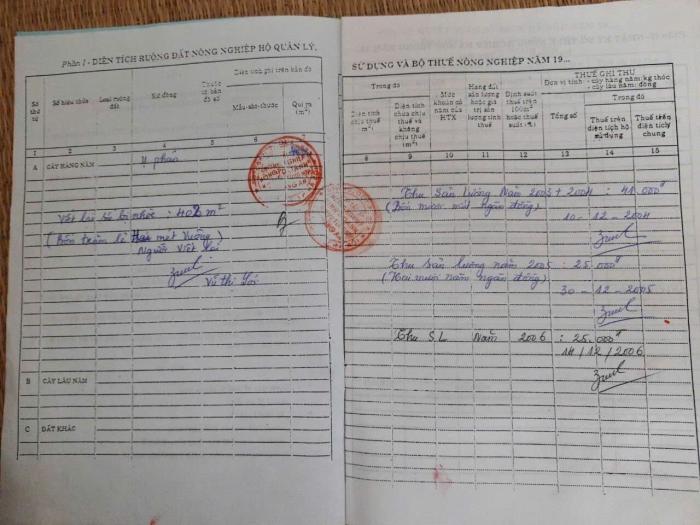 Phần I - DIỆN TÍCH RUỘNG ĐẤT NÔNG NGHIỆP HỘ QUẢN LÝ,
Số thứ tự
Số hiệu thửa
Loại ruộng đất
Xứ đồng
Thuộc tờ bản đồ số
Diện tích ghi trên bản đồ
Mẫu-sào-thước
Qui ra (m²)
1 2 3 4 5 6 7
A CÂY HÀNG NĂM
Viết lại số bị nhòe : 402 m²
(Bốn trăm lẻ hai mét vuông)
Người viết lại
Vũ thị
B CÂY LÂU NĂM
C ĐẤT KHÁC
SỬ DỤNG VÀ BỘ THUẾ NÔNG NGHIỆP NĂM 19...
Trong đó
Diện tích chịu thuế (m²)
Diện tích chưa chịu thuế và không chịu thuế (m²)
Mức khoán cả năm của HTX
Hạng đất sản lượng hoặc giá trị sản lượng tính thuế
Định suất thuế trên 100m² hoặc thuế suất (%)
THUẾ GHI THU
Đơn vị tính: - cây hàng năm: kg thóc
- cây lâu năm: đồng
Tổng số
Trong đó
Thuế trên diện tích hộ sử dụng
Thuế trên diện tích chung
8 9 10 11 12 13 14 15
Thu sản lượng Năm 2003 + 2004 : 41.000đ
(Bốn mươi mốt ngàn đồng)
10-12-2004
Thu sản lượng năm 2005 : 25.000đ
(Hai mươi năm ngàn đồng)
30-12-2005
Thu S.L Năm 2006 : 25.000đ
14/12/2006